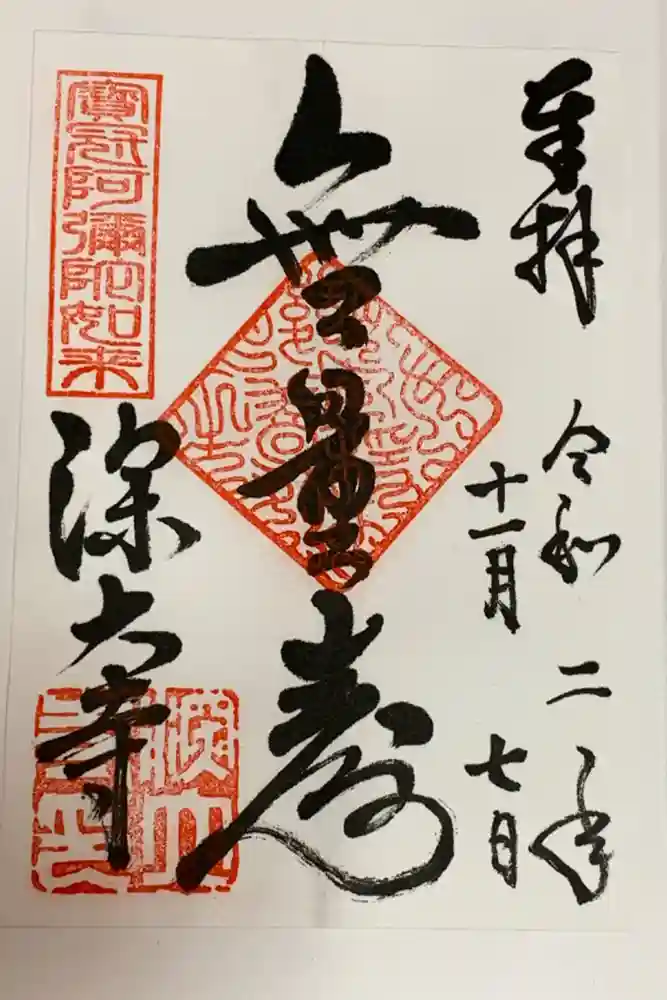 奉拝
令和二年
十一月
七日
無量壽
寶冠阿彌陀如来
深大寺